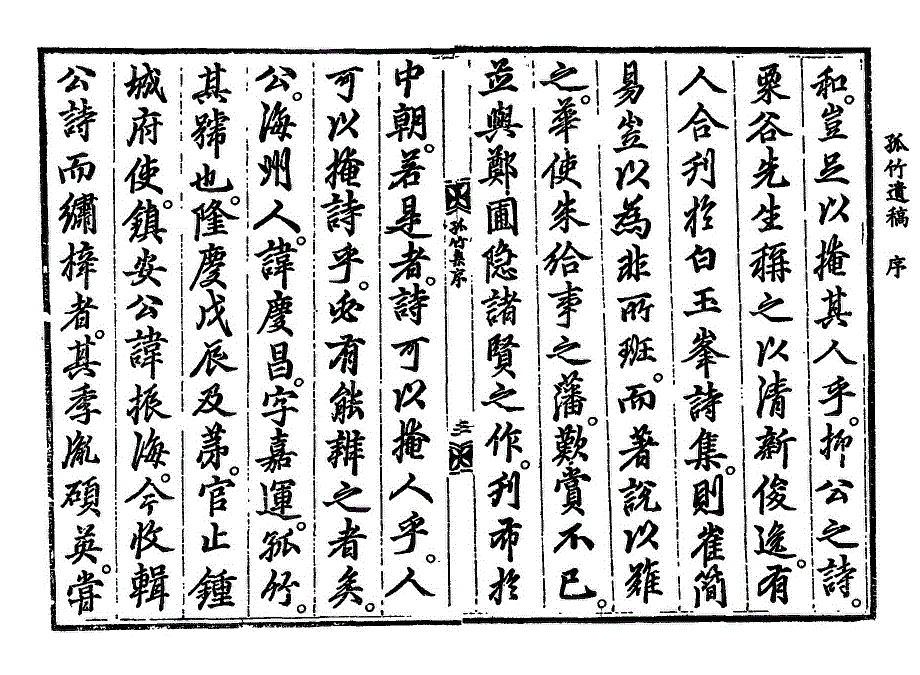 孤竹遺稿　序
和。豈足以掩其人乎。抑公之詩。
栗谷先生稱之以清新俊逸。有
人合刊於白玉峯詩集。則崔簡
易豈以為非所班。而著說以難
之。華使朱給事之藩。歎賞不已。
並與鄭圃隐諸賢之作。刊布於
中朝。若是者。詩可以掩人乎。人
可以掩詩乎。必有能辨之者矣。
公。海州人。諱慶昌。字嘉運。孤竹。
其號也。隆慶戊辰及第。官止鍾
城府使。鎮安公諱振海。今收輯
公詩而繡梓者。其季胤碩英。嘗
孤竹集序
三